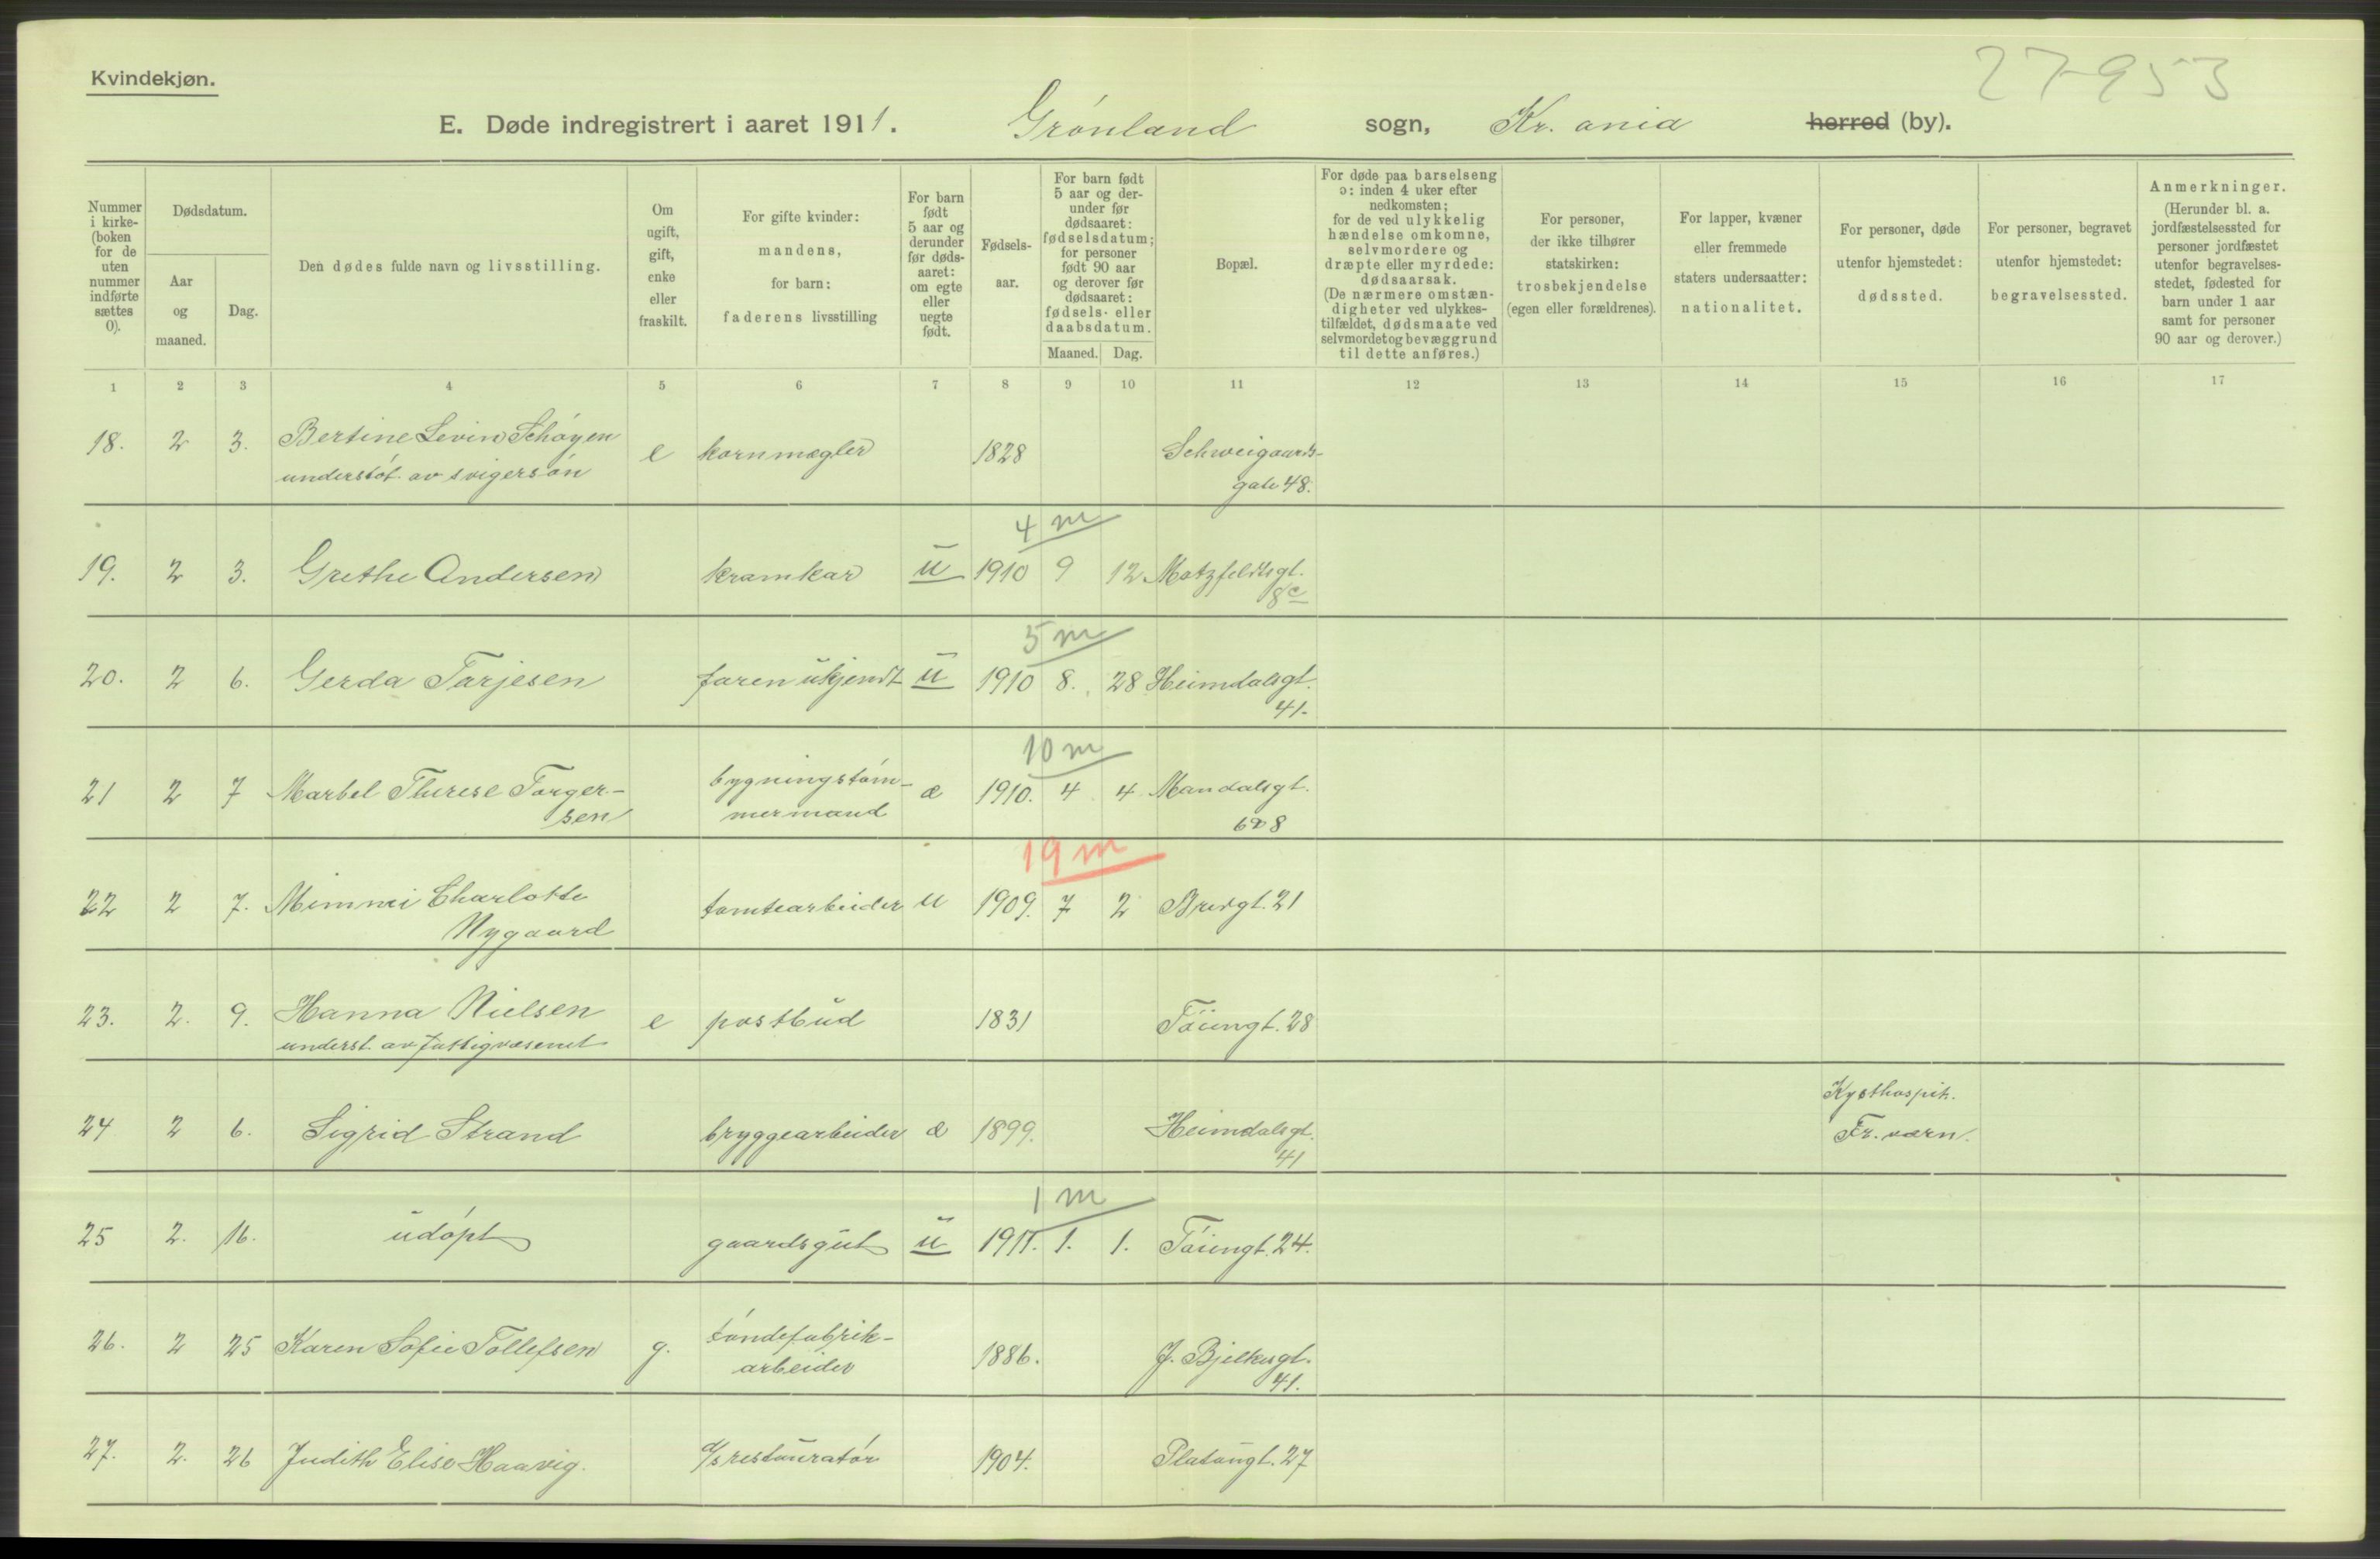 27-953
Kvindekjøn.
E. Døde indregistrert i aaret 1911. Grønland sogn, Kr.ania herred (by).
Nummer i kirkeboken for de uten nummer indførte sættes 0).
Dødsdatum.
Aar og maaned.
Dag.
Den dødes fulde navn og livsstilling.
Om ugift, gift, enke eller fraskilt.
For gifte kvinder: mandens, for barn: faderens livsstilling
For barn født 5 aar og derunder før dødsaaret: om egte eller uegte født.
Fødselsaar.
For barn født 5 aar og derunder før dødsaaret: fødselsdatum; for personer født 90 aar og derover før dødsaaret: fødsels- eller daabsdatum.
Maaned. Dag.
Bopæl.
For døde paa barselseng ɔ: inden 4 uker efter nedkomsten; for de ved ulykkelig hændelse omkomne, selvmordere og dræpte eller myrdede: dødsaarsak. (De nærmere omstændigheter ved ulykkestilfældet, dødsmaate ved selvmordet og bevæggrund til dette anføres.)
For personer, der ikke tilhører statskirken: trosbekjendelse (egen eller forældrenes).
For lapper, kvæner eller fremmede staters undersaatter: nationalitet.
For personer, døde utenfor hjemstedet: dødssted.
For personer, begravet utenfor hjemstedet: begravelsessted.
Anmerkninger. (Herunder bl. a. jordfæstelsessted for personer jordfæstet utenfor begravelsesstedet, fødested for barn under 1 aar samt for personer 90 aar og derover.)
1 2 3 4 5 6 7 8 9 10 11 12 13 14 15 16 17
18. 2 3. Bertine Levin Schøyen e kornmægler 1828 Schweigaards-
understøt. av svigersøn gate 48.
4 m
19. 2 3. Grethe Andersen kramkar u 1910 9 12 Motzfeldtsgt.
8c
5 m
20. 2 6. Gerda Tarjesen faren ukjendt u 1910 8. 28 Heimdalsgt.
41.
10 m
21 2 7 Marbel Therese Torger- bygningstøm- æ 1910. 4 4 Mandalsgt.
sen mermand 6 8
19 m
22 2 7. Mimmi Charlotte tomtearbeider u 1909. 7 2 Bredgt. 21
Nygaard
23. 2. 9. Hanna Nielsen e postbud 1831 Tøiengt. 28
underst. av fattigvæsenet
Kysthospit.
24 2 6. Sigrid Strand bryggearbeider æ 1899. Heimdalsgt. Fr. værn.
41
1 m
25 2. 16. udøpt gaardsgut u 1911. 1. 1. Tøiengt. 24.
26. 2 25 Karen Sofie Tollefsen g. tøndefabrik- 1886. J. Bjelkesgt.
arbeider 41.
27. 2. 26 Judith Elise Haavig. restauratør 1904. Platougt. 27